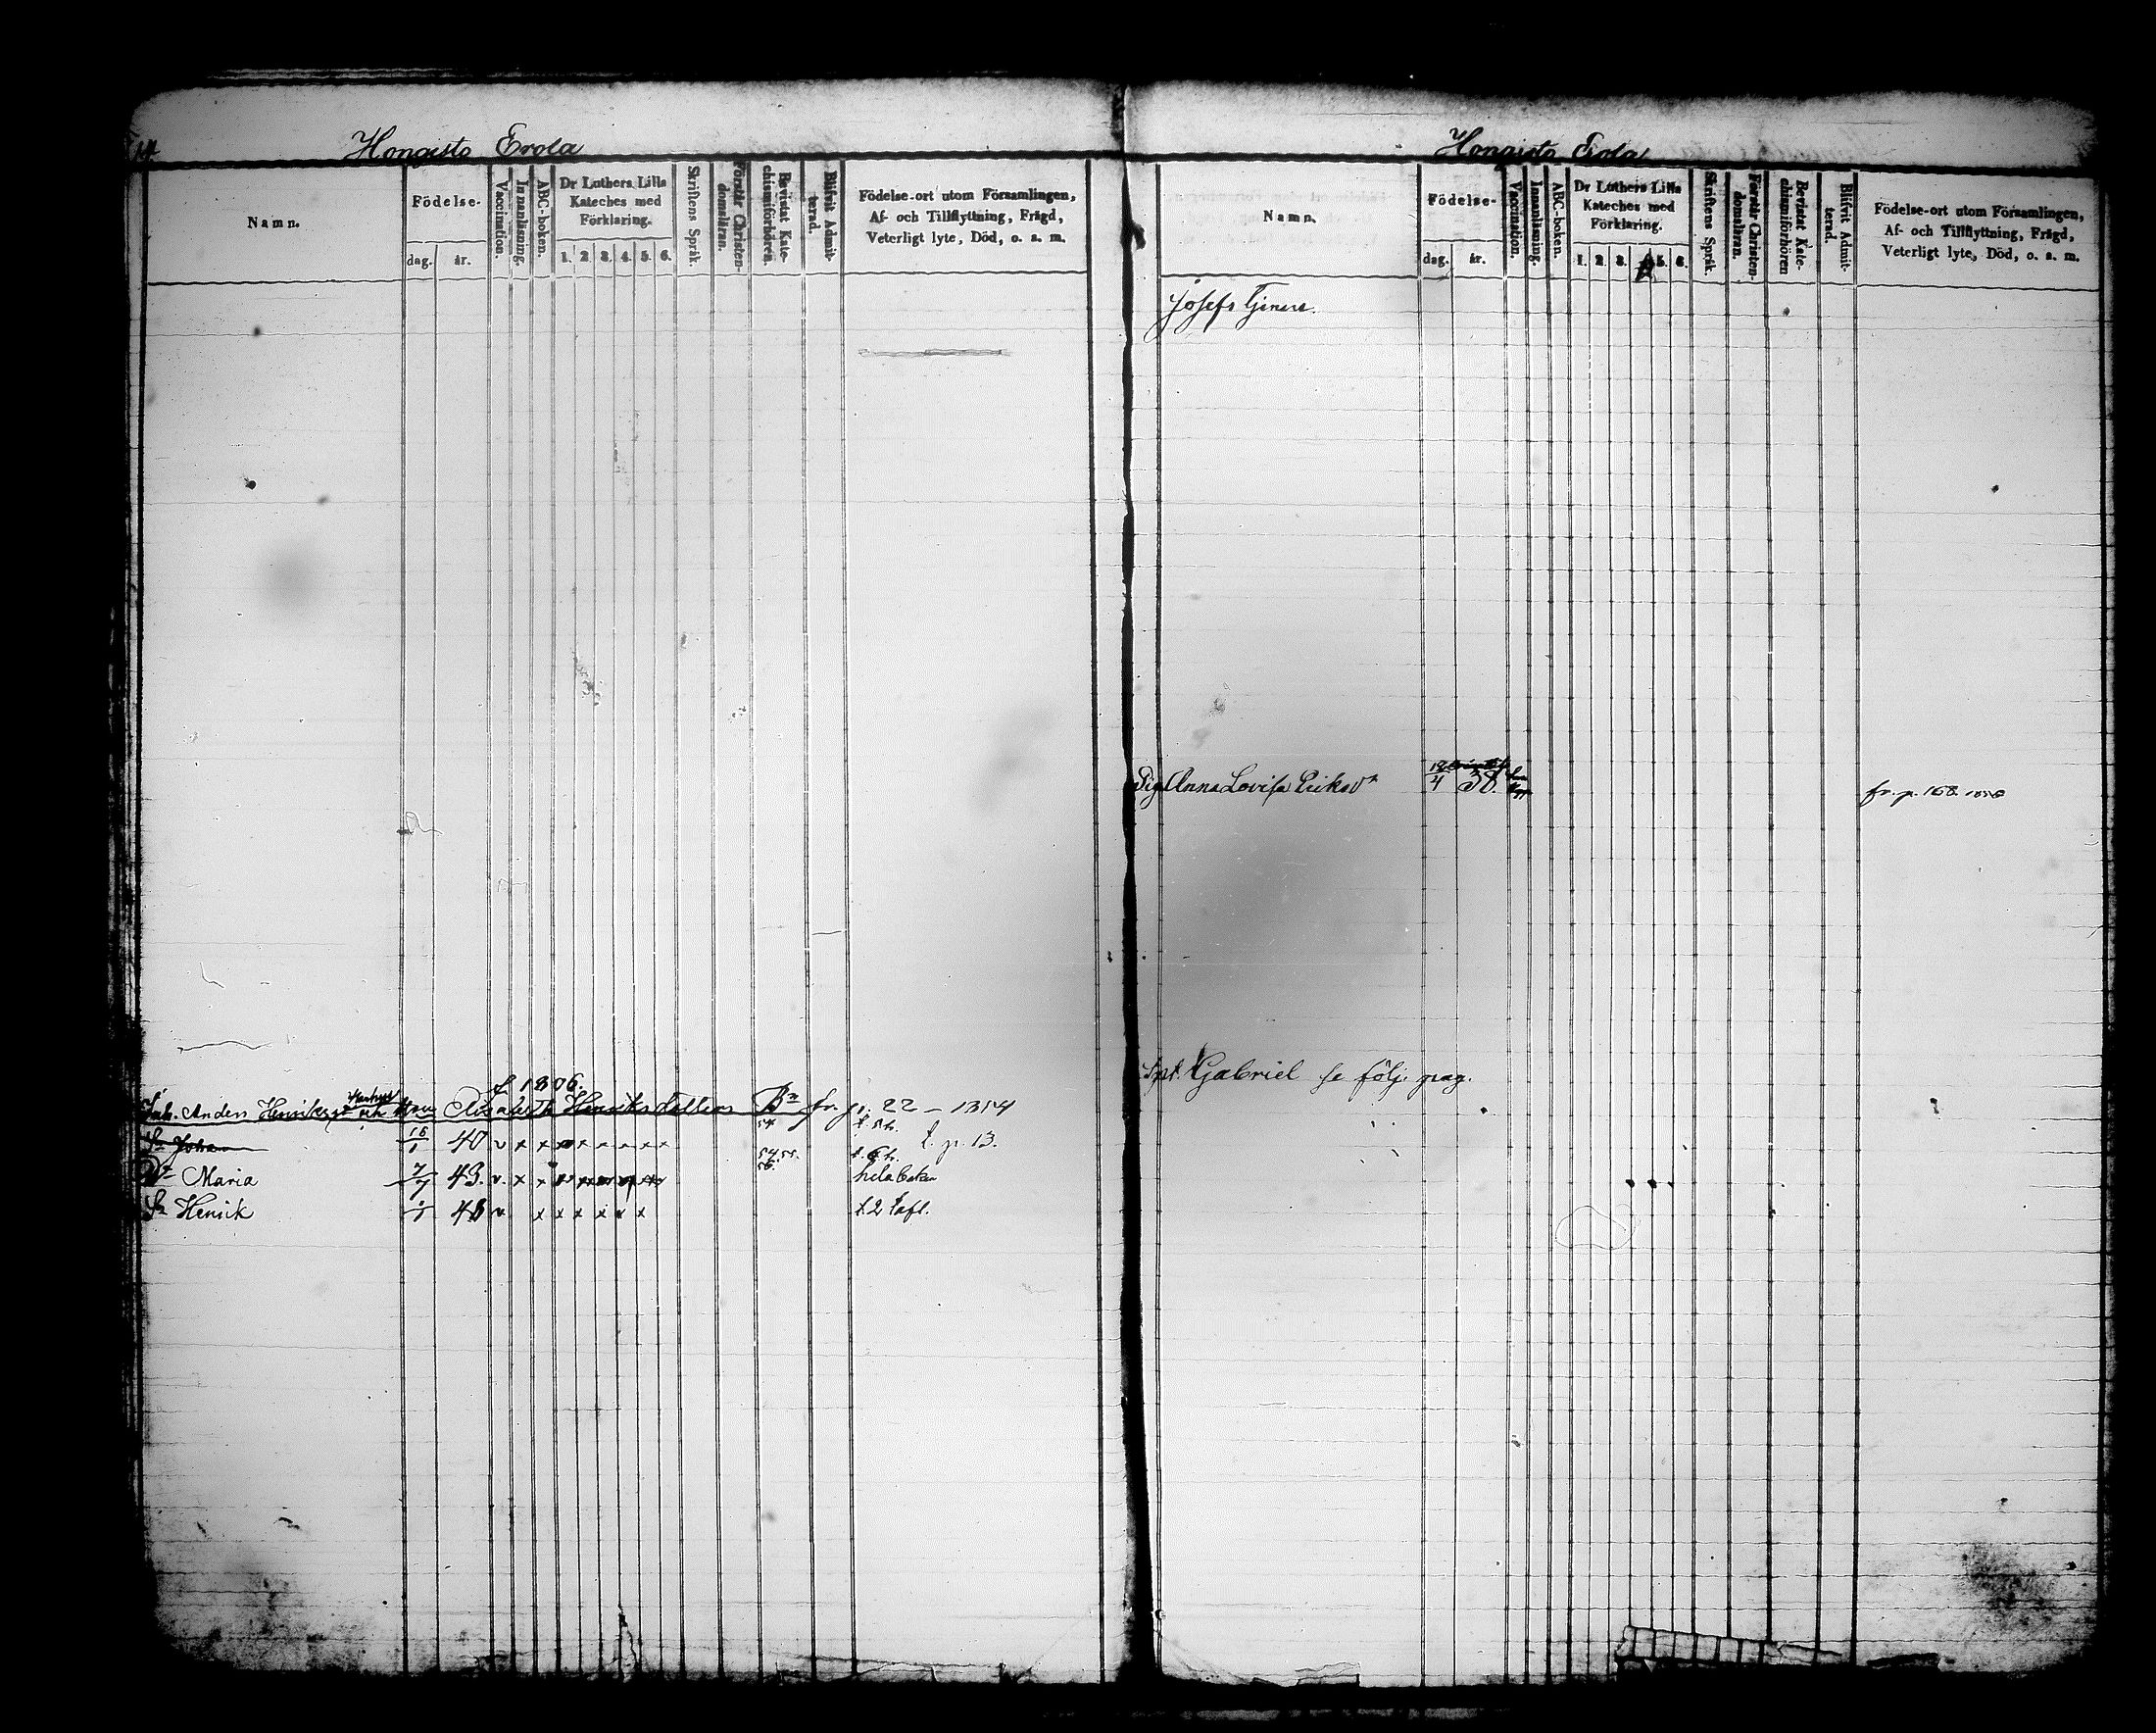 14
Hongisto Erola
Namn.
Födelse-
dag.
år.
Vaccination.
Innanläsning.
ABC-boken.
Dr Luthers Lilla
Kateches med
Förklaring.
1. 2. 3. 4. 5. 6.
Skriftens Språk.
Förstår Christen-
domsläran.
Bevistat Kate-
chismiförhören.
Blifvit Admit-
terad.
Födelse-ort utom Församlingen,
Af- och Tillflyttning, Frägd,
Veterligt lyte, Död, o. s. m.
f. 1806.
Inh. Anders Henriks
fr. p. 22 – 1854
Sn Johan 18/1 40 v x x
54
l. p. 13.
Dr Maria 7/7 43. v. x x
54. 55.
56.
hela boken
Sn Henrik 1/1 48 v x x x x x x
t. 2 tafl.
Hongisto Erola
Namn.
Födelse-
dag.
år.
Vaccination.
Innanläsning.
ABC-boken.
Dr Luthers Lilla
Kateches med
Förklaring.
1. 2. 3. 5. 6.
Skriftens Språk.
Förstår Christen-
domsläran.
Bevistat Kate-
chismiförhören
Blifvit Admit-
terad.
Födelse-ort utom Församlingen,
Af- och Tillflyttning, Frägd,
Veterligt lyte, Död, o. s. m.
Josefs tjenare.
Pig. Anna Lovisa Eriksdr 18/4 38.
fr. p. 168. 1856
Gabriel se följ. pag.